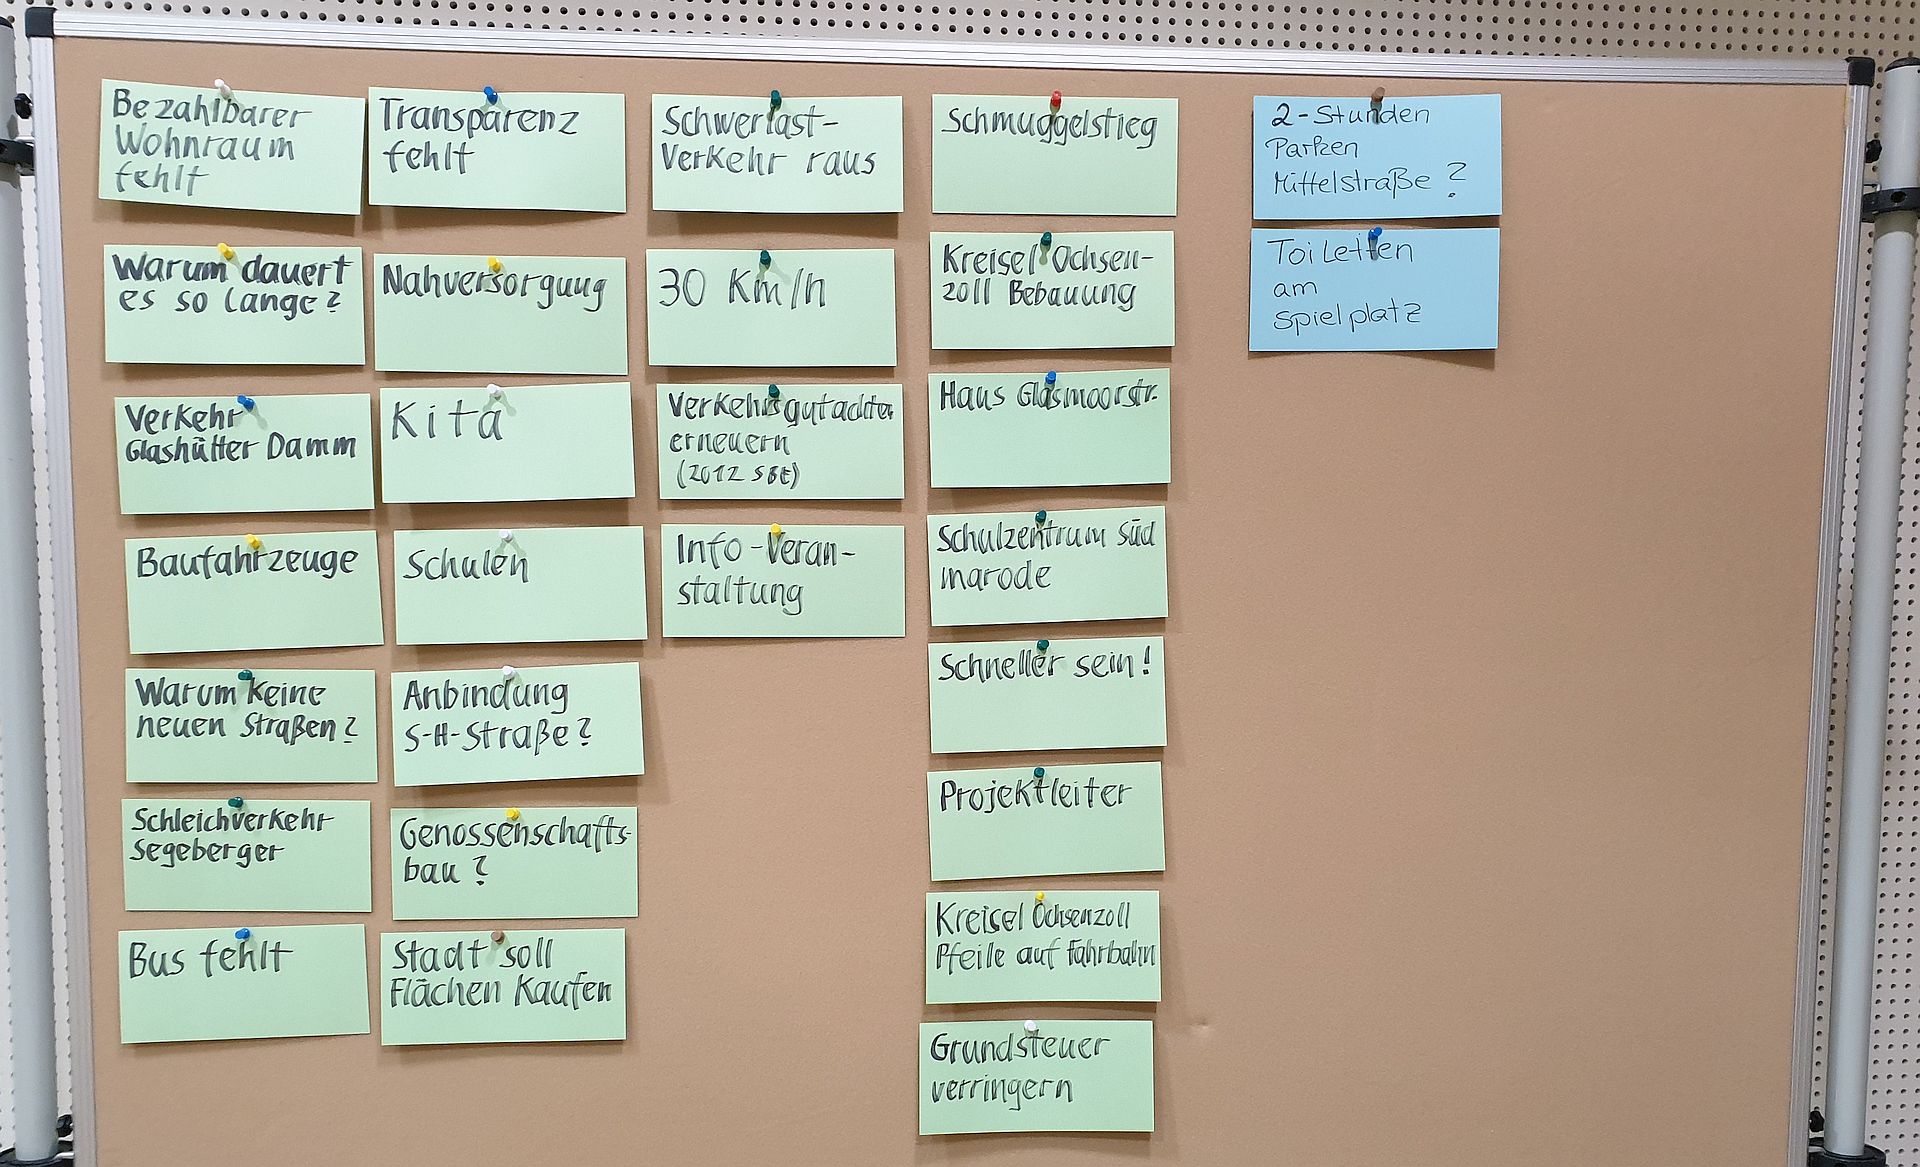 Bezahlbarer
Wohnraum
fehlt
Warum dauert
es so lange?
Verkehr
Glashütter Damm
Baufahrzeuge
Warum keine
neuen Straßen?
Schleichverkehr
Segeberger
Bus fehlt
Transparenz
fehlt
Nahversorgung
Kita
Schulen
Anbindung
S-H-Straße?
Genossenschafts-
bau?
Stadt soll
Flächen Kaufen
Schwerlast-
Verkehr raus
30 Km/h
Verkehrsgutachten
erneuern
(2012 SBE)
Info-Veran-
staltung
Schmuggelstieg
Kreisel Ochsen-
zoll Bebauung
Haus Glasmoorstr.
Schulzentrum Süd
marode
Schneller sein!
Projektleiter
Kreisel Ochsenzoll
Pfeile auf Fahrbahn
Grundsteuer
verringern
2-Stunden
Parken
Mittelstraße?
Toiletten
am
Spielplatz